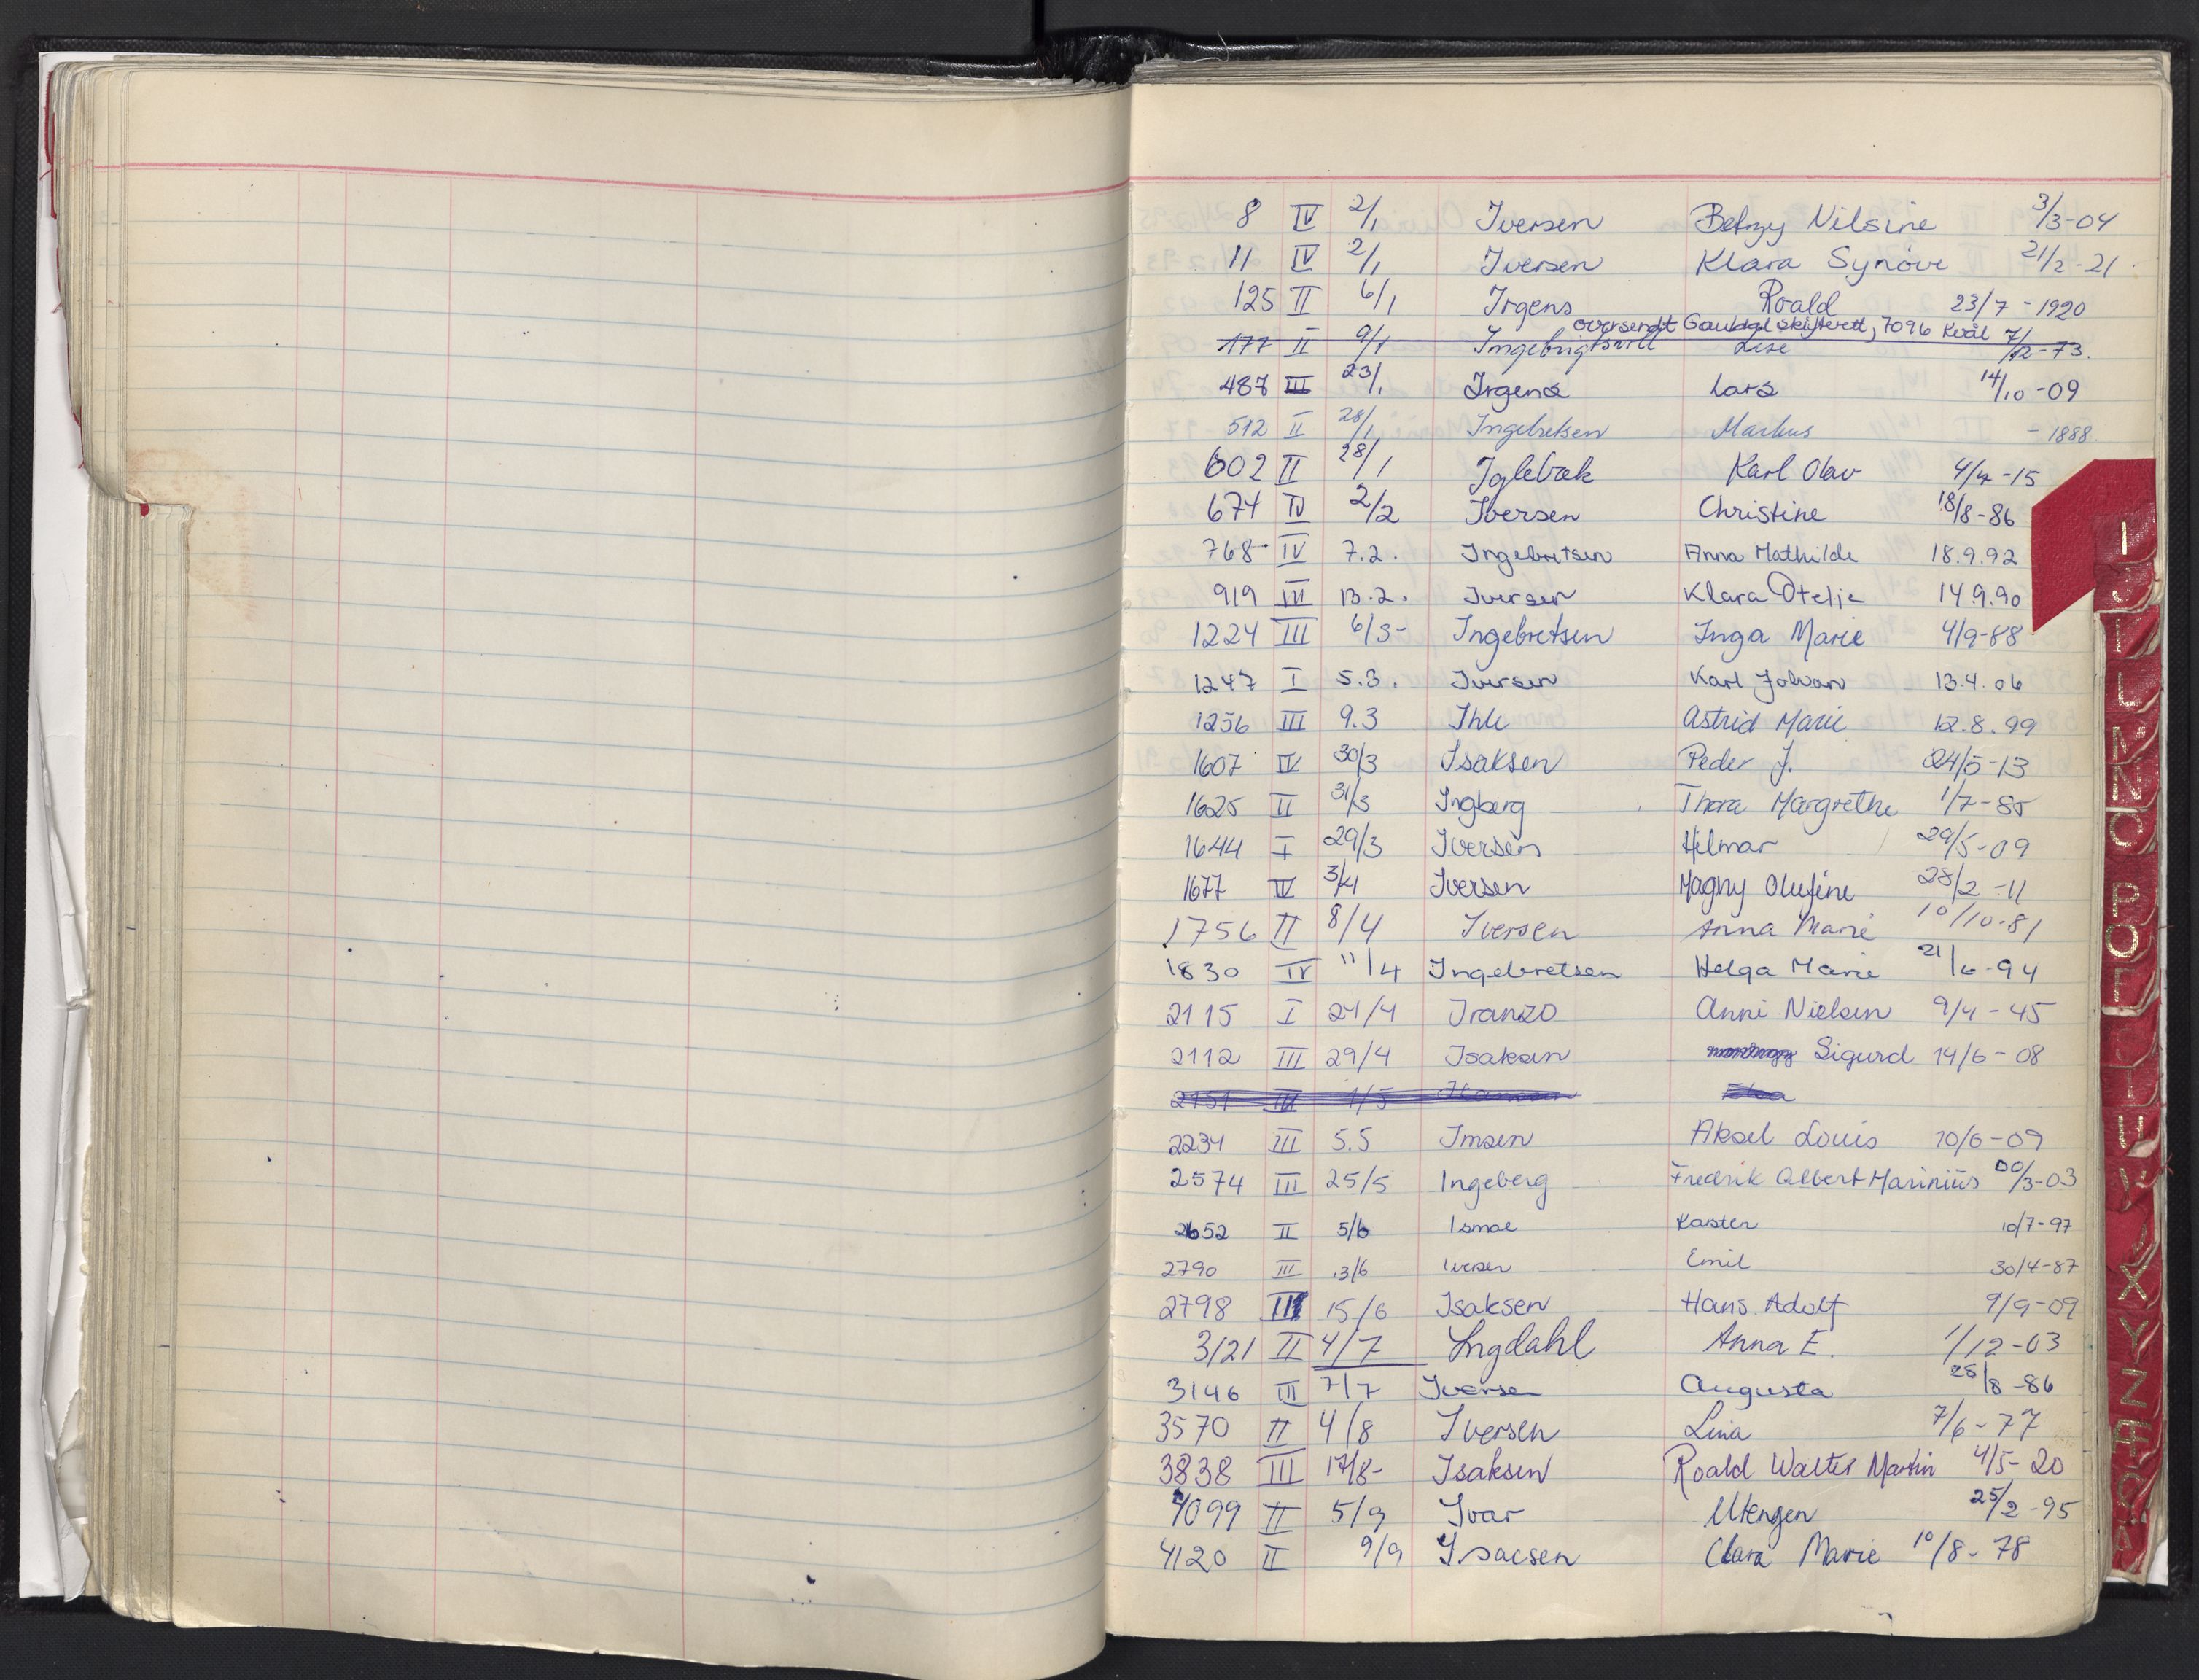 8 IV 2/1 Iversen Betzy Nilsine 3/3-04
11 IV 2/1 Iversen Klara Synöve 21/2-21
125 II 6/1 Irgens Roald 23/7-1920
oversendt Gauldal skifterett, 7096 Kvål 7/
177 II 9/1 Lise 12-73.
487 III 23/1 Irgens Lars 14/10-09
512 II 28/1 Ingebretsen Markus -1888
602 II 28/1 Iglebæk Karl Olav 4/4-15
674 IV 2/2 Iversen Christine 18/8-86
768 IV 7.2. Ingebretsen Anna Mathilde 18.9.92
919 III 13.2. Iversen Klara Otelie 14.9.90
1224 III 6/3- Ingebretsen Inga Marie 4/9-88
1247 I 5.3. Iversen Karl Johan 13.4.06
1256 III 9.3 Ihle Astrid Marie 12.8.99
1607 IV 30/3 Isaksen Peder J. 24/5-13
1625 II 31/3 Ingberg Thora Margrethe 1/7-85
1644 I 29/3 Iversen Hilmar 29/5-09
1677 IV 3/4 Iversen Magny Olufine 28/2-11
1756 II 8/4 Iversen Anna Marie 10/10-81
1830 IV 11/4 Ingebretsen Helga Marie 21/6-94
2115 I 24/4 Iranzo Anni Nielsen 9/4-45
2112 III 29/4 Isaksen Sigurd 14/6-08
2151 III 1/5
2234 III 5.5 Imsen Aksel Louis 10/6-09
2574 III 25/5 Ingeberg Fredrik Albert Marinius /3-03
2652 II 5/6 Ismae Karsten 10/7-97
2790 III 13/6 Iversen Emil 30/4-87
2798 III 15/6 Isaksen Hans Adolf 9/9-09
3121 II 4/7 Ingdahl Anna E. 1/12-03
3146 III 7/7 Iversen Augusta 25/8-86
3570 II 4/8 Iversen Lina 7/6-77
3838 III 17/8- Isaksen Roald Walter Martin 4/5-20
4099 II 5/9 Ivar Utengen 25/2-95
4120 II 9/9 Isacsen Clara Marie 10/8-78